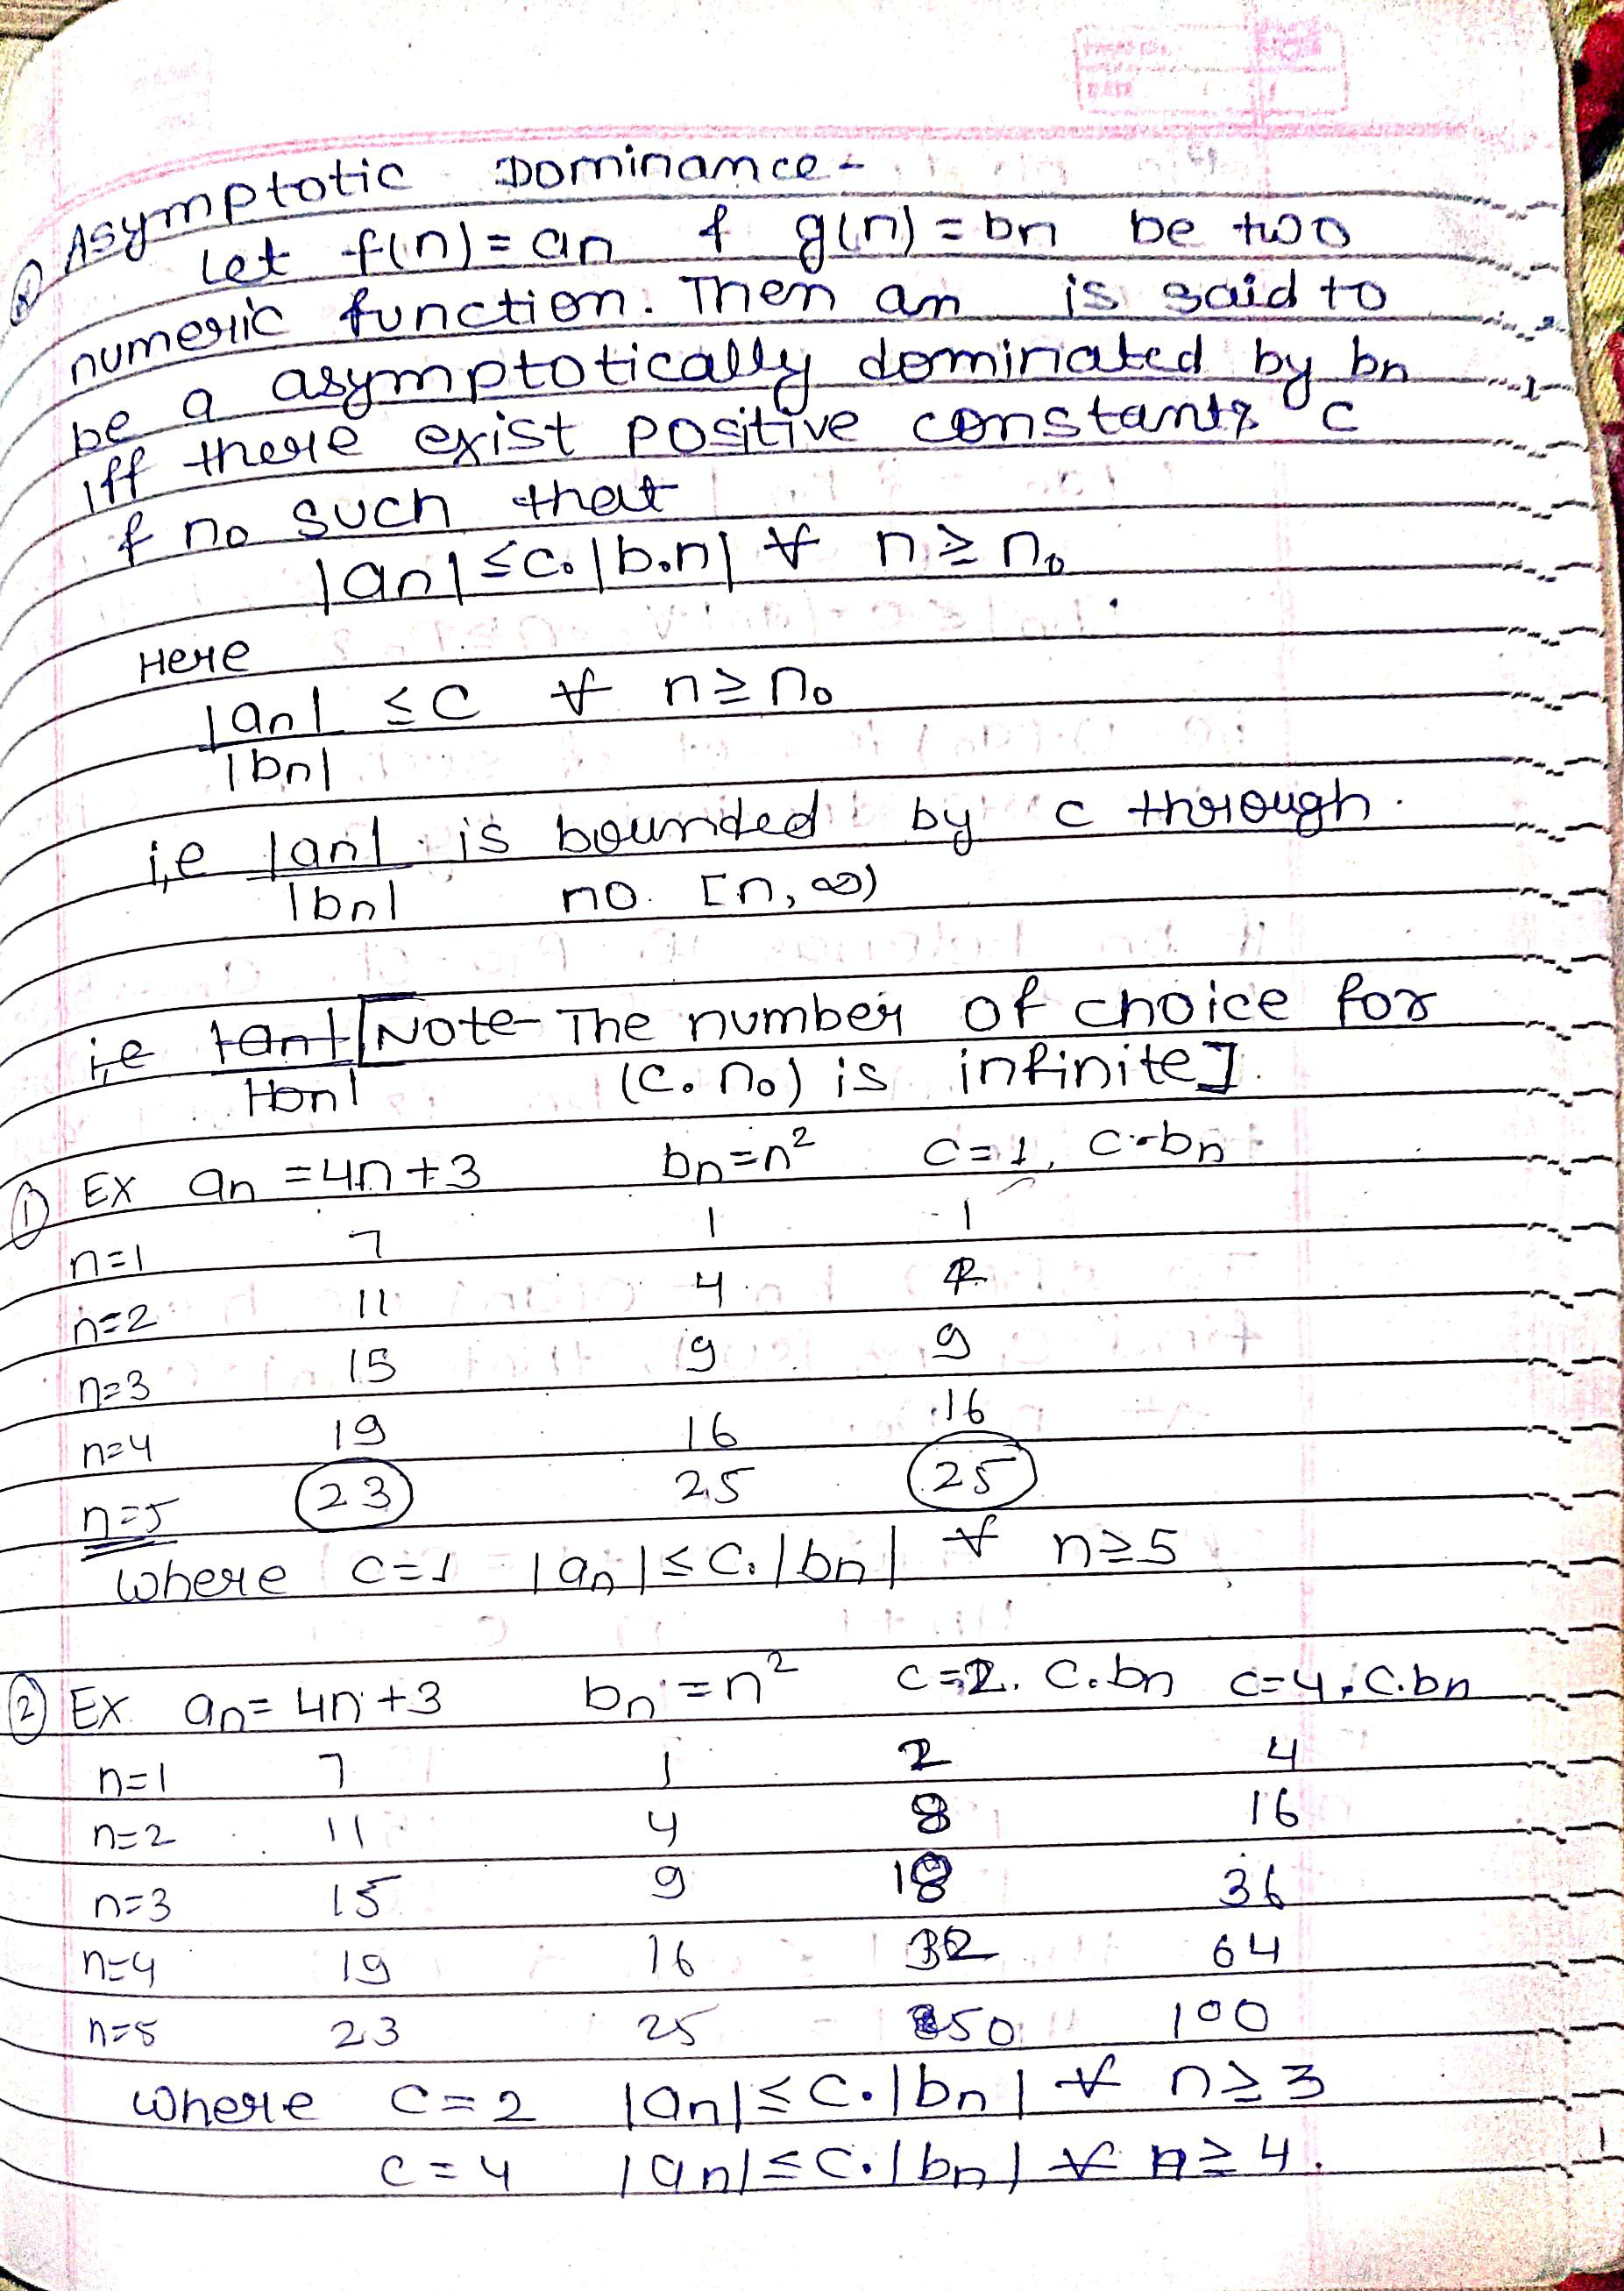 Asymptotic Dominance -
Let f(n) = an & g(n) = bn be two
numeric function. Then an is said to
be a asymptotically dominated by bn
iff there exist positive constants c
& no such that
|an| ≤ c. |b.n| ∀ n ≥ n₀
Here
|an| ≤ C ∀ n ≥ n₀
|bn|
i,e |an| is bounded by c through
|bn| no. [n, ∞)
i,e |an| [Note- The number of choice for
|bn| (C. n₀) is infinite].
① Ex an = 4n+3 bn = n² C=1, C·bn
n=1 7 1 1
n=2 11 4 4
n=3 15 9 9
n=4 19 16 16
n=5 23 25 25
where C=1 |an| ≤ C. |bn| ∀ n≥5
② Ex. an = 4n+3 bn = n² C=2. C.bn C=4, C.bn
n=1 7 1 2 4
n=2 11 4 8 16
n=3 15 9 18 36
n=4 19 16 32 64
n=5 23 25 50 100
where C=2 |an| ≤ C.|bn| ∀ n≥3
C=4 |an| ≤ C.|bn| ∀ n≥4.